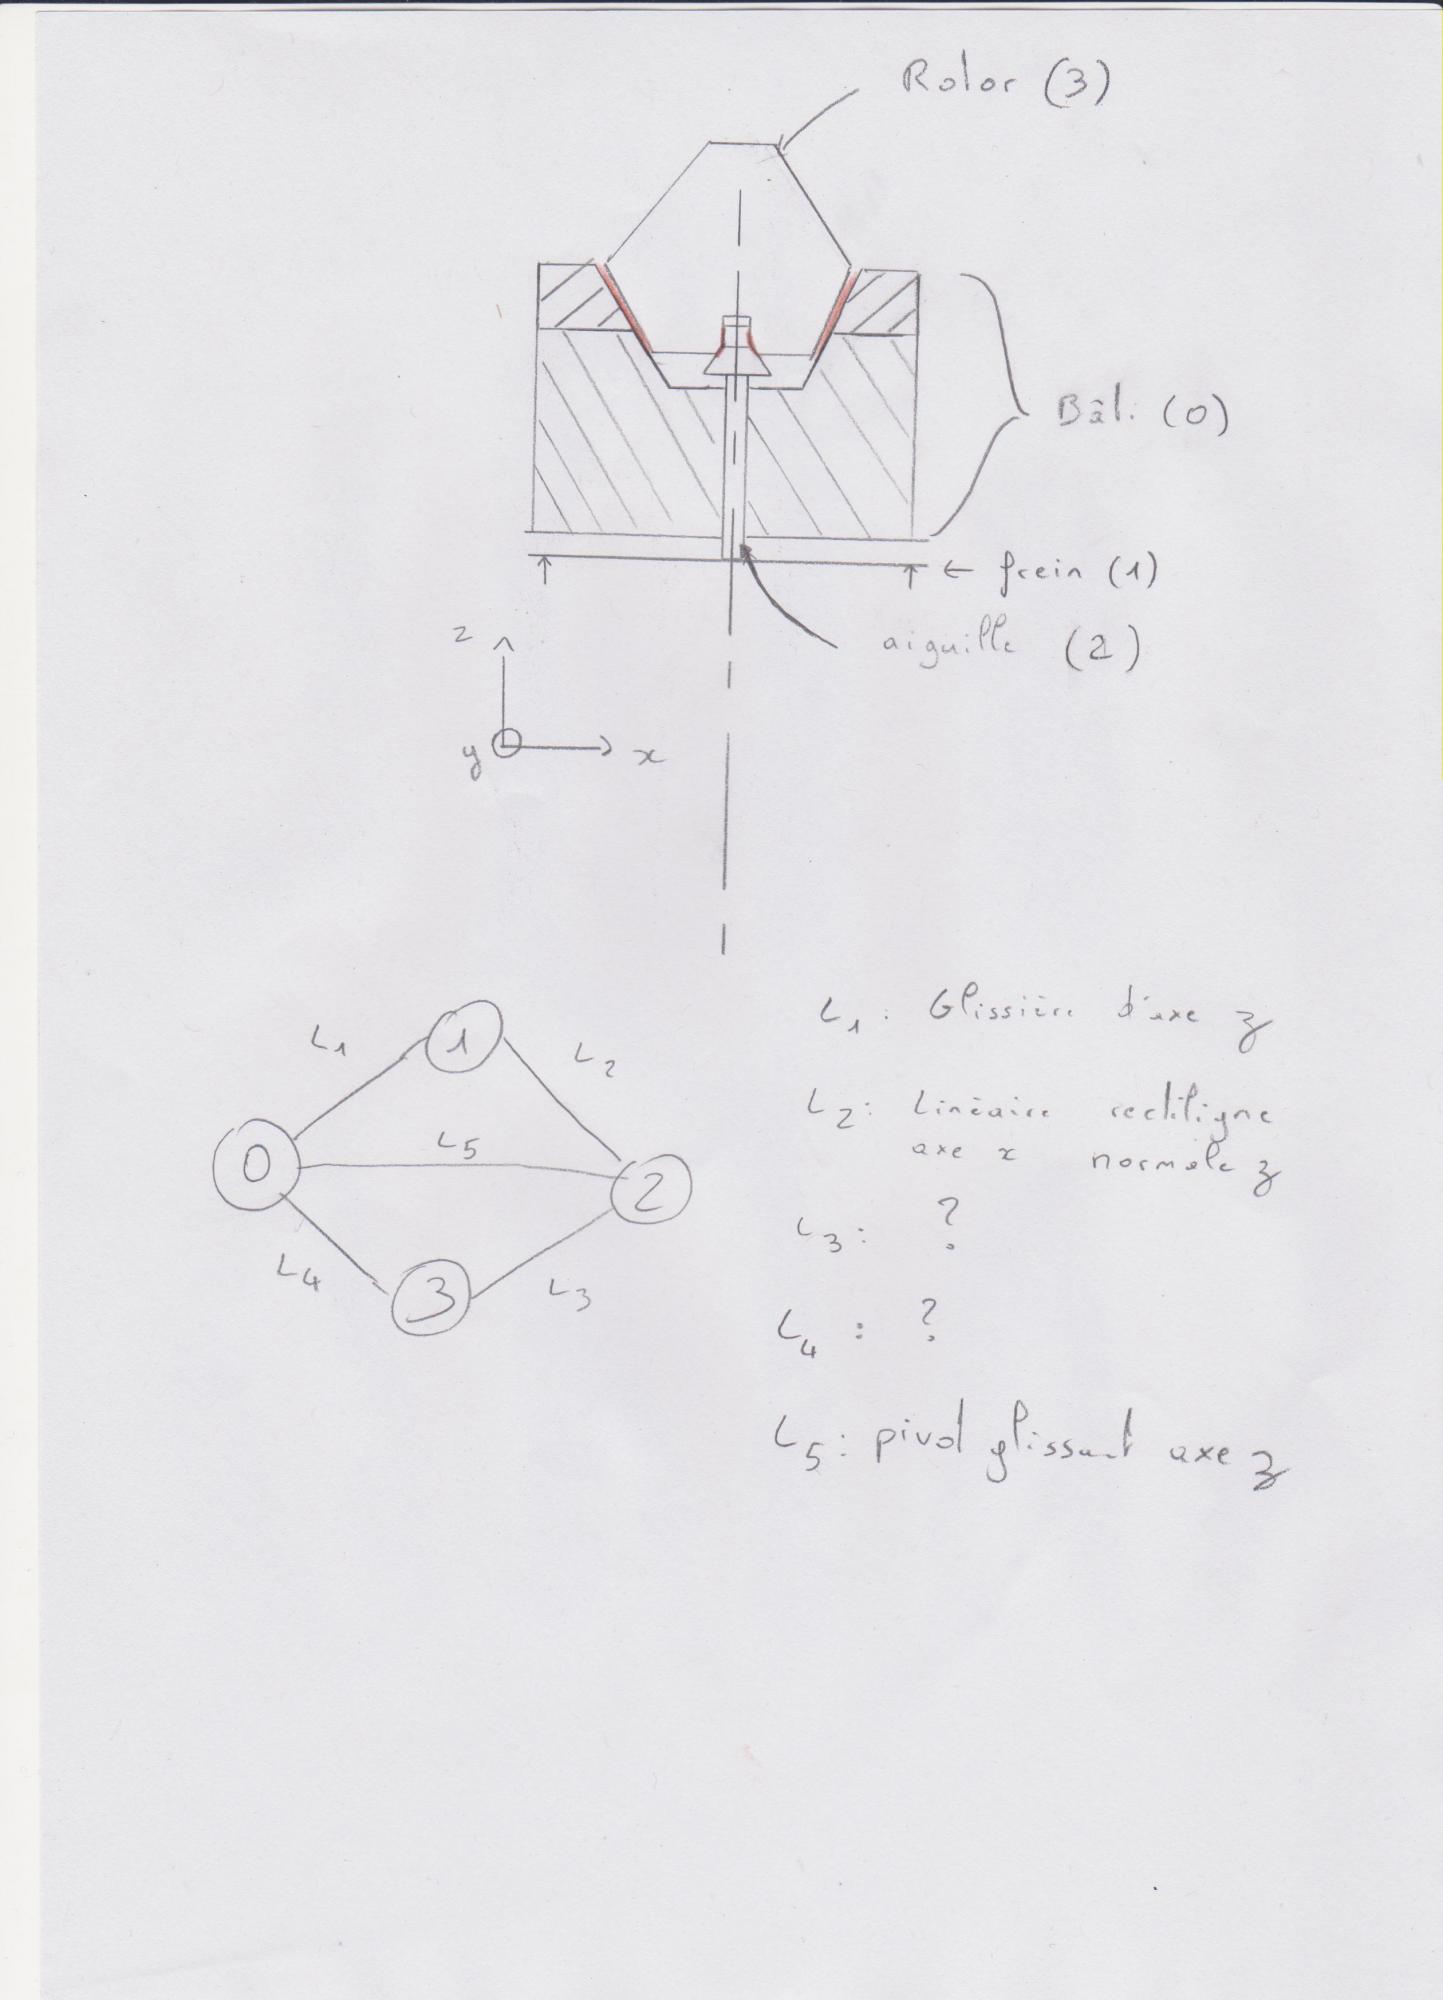 Rotor (3)
Bâti (0)
← frein (1)
aiguille (2)
z
y
x
L1
1
L2
0
L5
2
L4
3
L3
L1 : Glissière d'axe z
L2 : Linéaire rectiligne
axe x normale z
L3 : ?
L4 : ?
L5 : pivot glissant axe z